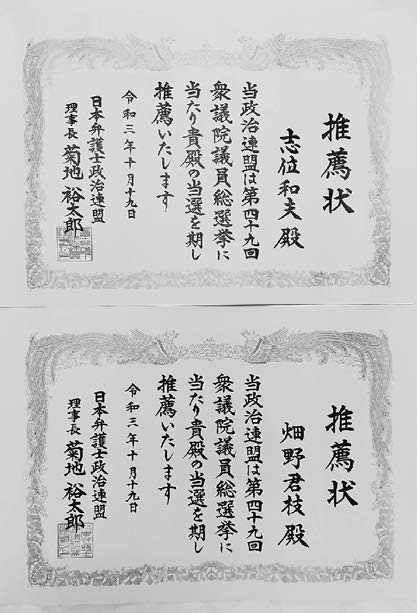 推薦状
志位和夫殿
当政治連盟は第四十九回
衆議院議員総選挙に
当たり貴殿の当選を期し
推薦いたします
令和三年十月十九日
日本弁護士政治連盟
理事長 菊地裕太郎
推薦状
畑野君枝殿
当政治連盟は第四十九回
衆議院議員総選挙に
当たり貴殿の当選を期し
推薦いたします
令和三年十月十九日
日本弁護士政治連盟
理事長 菊地裕太郎